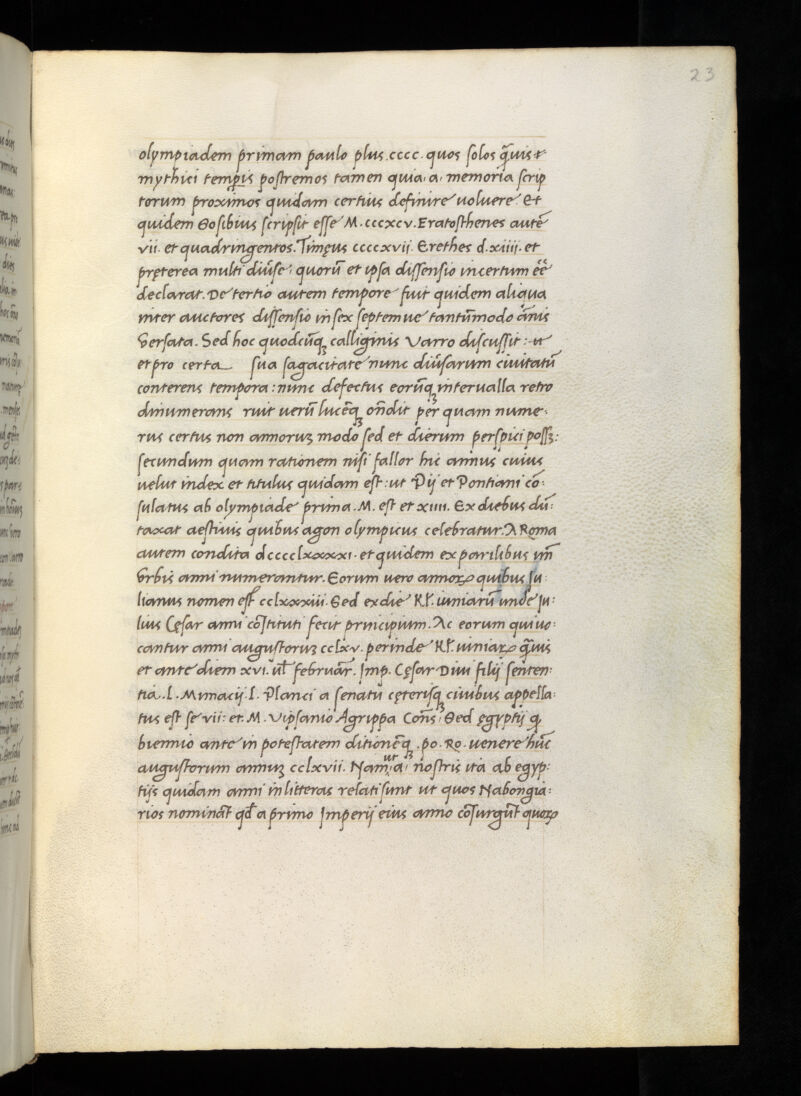 23
olympiadem primam paulo plus .cccc. quos solos q̃uis &
mythici temp̲is postremos tamen quia · a · memoria scrip
torum proximos quidam certius definire uoluere. Et
quidem Sosibius scripsit esse M.cccxcv. Eratosthenes autē
vii. et quadringentos. Timęus ccccxvii. Erethes d.xiiii. et
pręterea multi diu̅se: quorū et ipsa dissensio incertum eē
declarat. De tertio autem tempore fuit quidem aliqua
inter auctores dissensio in sex septem ue tantūmodo ānis
Versata. Sed hoc quodcūqꝫ calliginis Varro discussit: ut
et pro certa sua sagacitate nunc diu̅sarum ciuitatū
conterens tempora: nunc defectus eorūqꝫ interualla retro
dinumerans ruit uerū lucēqꝫ on̄dit per quam nume-
rus certus non annoruꝫ modo sed et dierum perspici possꝫ:
secundum quam rationem nisi fallor hic annus cuius
uelut index et titulus quidam est: ut Pij et Pontiani co-
sulatus ab olympiade prima .M. est et xiiii. Ex diebus dū-
taxat aestiuis quibus agon olympicus celebratur. A Roma
autem condita dcccclxxxxi. et quidem ex parilibus un̄
Vrbis anni numerantur. Eorum uero annoꝝ quibus Ju-
lianus nomen est cclxxxiii. Sed ex die Kł. iuniarū unde Ju-
lius Cęsar anni cōstituti fecit principium. Ac eorum qui uo-
cantur anni augustoruꝫ cclxv. perinde Kł. iuniaꝝ q̃uis
et ante diem xvi. uł februar̄. Imp. Cęsar Diui filij senten-
tia .l. Minacij .l. Planci a senatu cęterisqꝫ ciuibus appella-
tus est se vii: et .M. Vipsanio Agrippa Cons̄. Sed ęgyptij q̨
biennio ante in potestatem ditionēqꝫ .po. Ro. uenere hūc
augustorum annuꝫ cclxvii. Nam ut · a · nostris ita ab egyp-
tijs quidam anni in litteras relati sunt ut quos Nabongia-
rios nomināt qđ a primo Imperij eius anno cōsurgūt quoꝝ